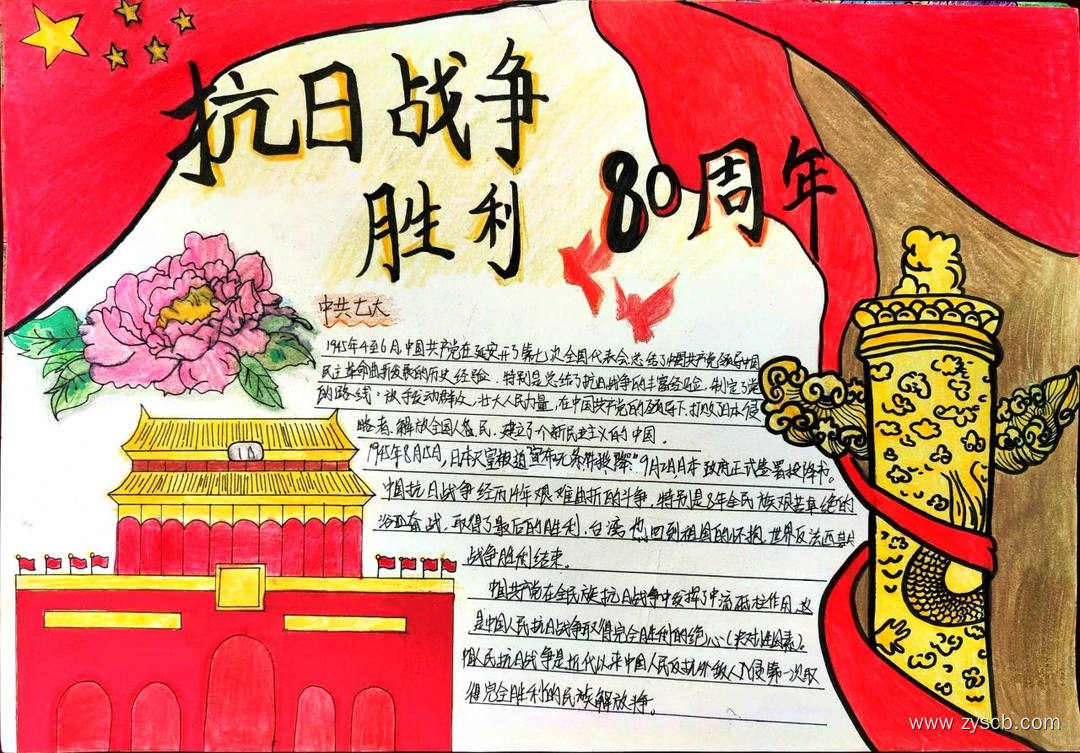 抗日战争
胜利 80周年
中共七大
1945年4至6月,中国共产党在延安开了第七次全国代表会总结了中国共产党领导中国
民主革命曲折发展的历史经验,特别是总结了抗日战争的丰富经验,制定了党
的路线:放手发动群众,壮大人民力量,在中国共产党的领导下,打败日本侵
略者,解放全国人民,建立一个新民主主义的中国.
1945年8月15日,日本天皇被迫宣布无条件投降."9月2日日本政府正式签署投降书。
中国抗日战争经历14年艰难曲折的斗争,特别是8年全民族艰苦卓绝的
浴血奋战,取得了最后的胜利,台湾也回到祖国的怀抱,世界反法西斯
战争胜利结束。
中国共产党在全民族抗日战争中发挥了中流砥柱作用,这
是中国人民抗日战争取得完全胜利的决心(决定性因素)。
人民抗日战争是近代以来中国人民反抗外敌入侵第一次取
得完全胜利的民族解放争。
www.zyscb.com